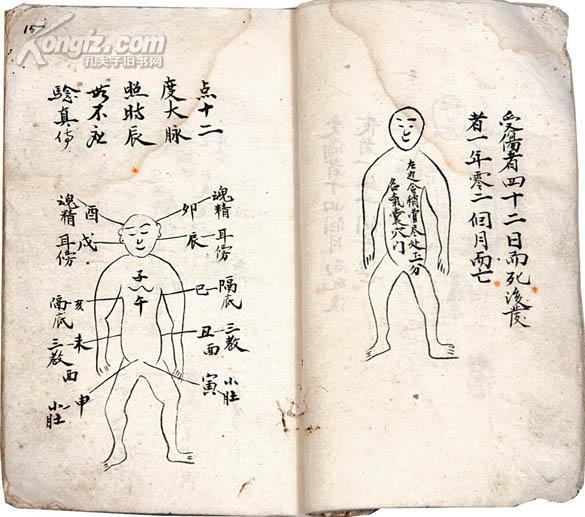 Kongfz.com
孔夫子旧书网
受傷者四十二日而死後發
者一年零二個月而亡
左边令稍骨尽处五分
名氣囊穴门
15
点十二
度大脉
照時辰
不
驗真传
魂精
卯
耳傍
辰
隔底
巳
三教
丑
面
小肚
寅
子
午
魂精
酉
耳傍
戌
隔底
亥
三教
未
西
小肚
申